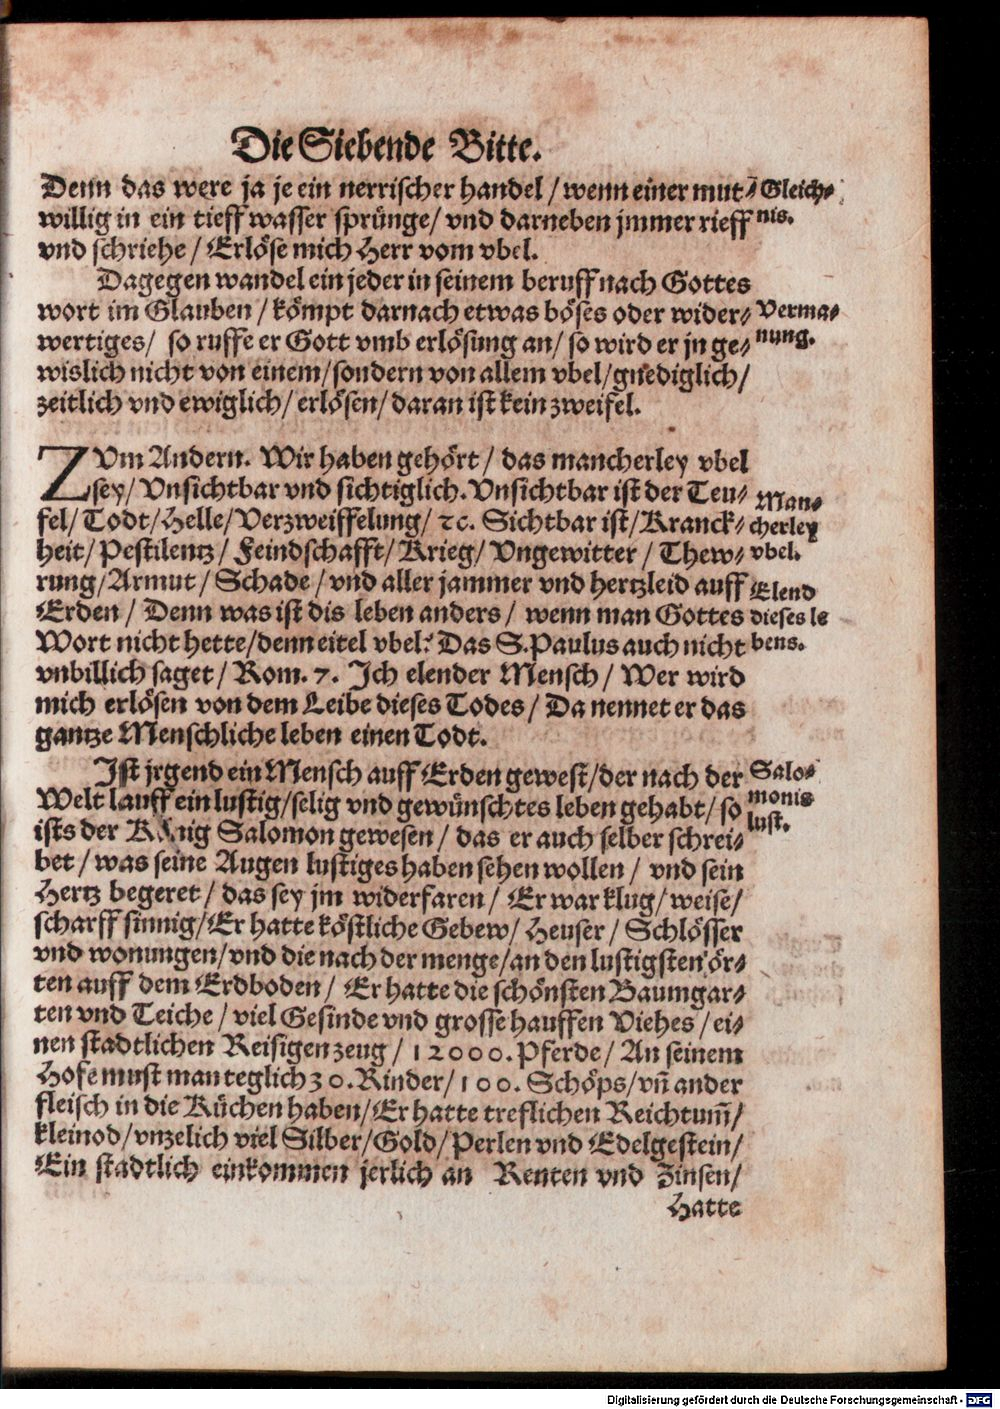 Die Siebende Bitte.
Denn das were ja je ein nerrischer handel / wenn einer mut⸗
Gleich⸗
willig in ein tieff wasser sprünge / vnd darneben jmmer rieff
nis.
vnd schriehe / Erlöse mich Herr vom vbel.
Dagegen wandel ein jeder in seinem beruff nach Gottes
wort im Glauben / kömpt darnach etwas böses oder wider⸗
Verma⸗
wertiges / so ruffe er Gott vmb erlösung an / so wird er jn ge⸗
nung.
wislich nicht von einem / sondern von allem vbel / gnediglich /
zeitlich vnd ewiglich / erlösen / daran ist kein zweifel.
ZVm Andern. Wir haben gehört / das mancherley vbel
sey / Vnsichtbar vnd sichtiglich. Vnsichtbar ist der Teu⸗
Man⸗
fel / Todt / Helle / Verzweiffelung / ꝛc. Sichtbar ist / Kranck⸗
cherley
heit / Pestilentz / Feindschafft / Krieg / Vngewitter / Thew⸗
vbel.
rung / Armut / Schade / vnd aller jammer vnd hertzleid auff
Elend
Erden / Denn was ist dis leben anders / wenn man Gottes
dieses le
Wort nicht hette / denn eitel vbel? Das S. Paulus auch nicht
bens.
vnbillich saget / Rom. 7. Ich elender Mensch / Wer wird
mich erlösen von dem Leibe dieses Todes / Da nennet er das
gantze Menschliche leben einen Todt.
Ist jrgend ein Mensch auff Erden gewest / der nach der
Salo⸗
Welt lauff ein lustig / selig vnd gewünschtes leben gehabt / so
monis
ists der König Salomon gewesen / das er auch selber schrei⸗
lust.
bet / was seine Augen lustiges haben sehen wollen / vnd sein
Hertz begeret / das sey jm widerfaren / Er war klug / weise /
scharff sinnig / Er hatte köstliche Gebew / Heuser / Schlösser
vnd wonungen / vnd die nach der menge / an den lustigsten ör⸗
ten auff dem Erdboden / Er hatte die schönsten Baumgar⸗
ten vnd Teiche / viel Gesinde vnd grosse hauffen Viehes / ei⸗
nen stadtlichen Reisigen zeug / 12000. Pferde / An seinem
Hofe must man teglich 30. Rinder / 100. Schöps / vñ ander
fleisch in die Küchen haben / Er hatte treflichen Reichtum̃ /
kleinod / vnzelich viel Silber / Gold / Perlen vnd Edelgestein /
Ein stadtlich einkommen jerlich an Renten vnd Zinsen /
Hatte
Digitalisierung gefördert durch die Deutsche Forschungsgemeinschaft - DFG